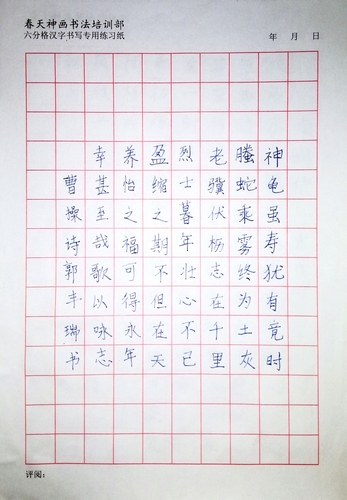 春天神画书法培训部
六分格汉字书写专用练习纸
年 月 日
神龟虽寿犹有竟时
螣蛇乘雾终为土灰
老骥伏枥志在千里
烈士暮年壮心不已
盈缩之期不但在天
养怡之福可得永年
幸甚至哉歌以咏志
曹操诗郭丰瑞书
评阅：